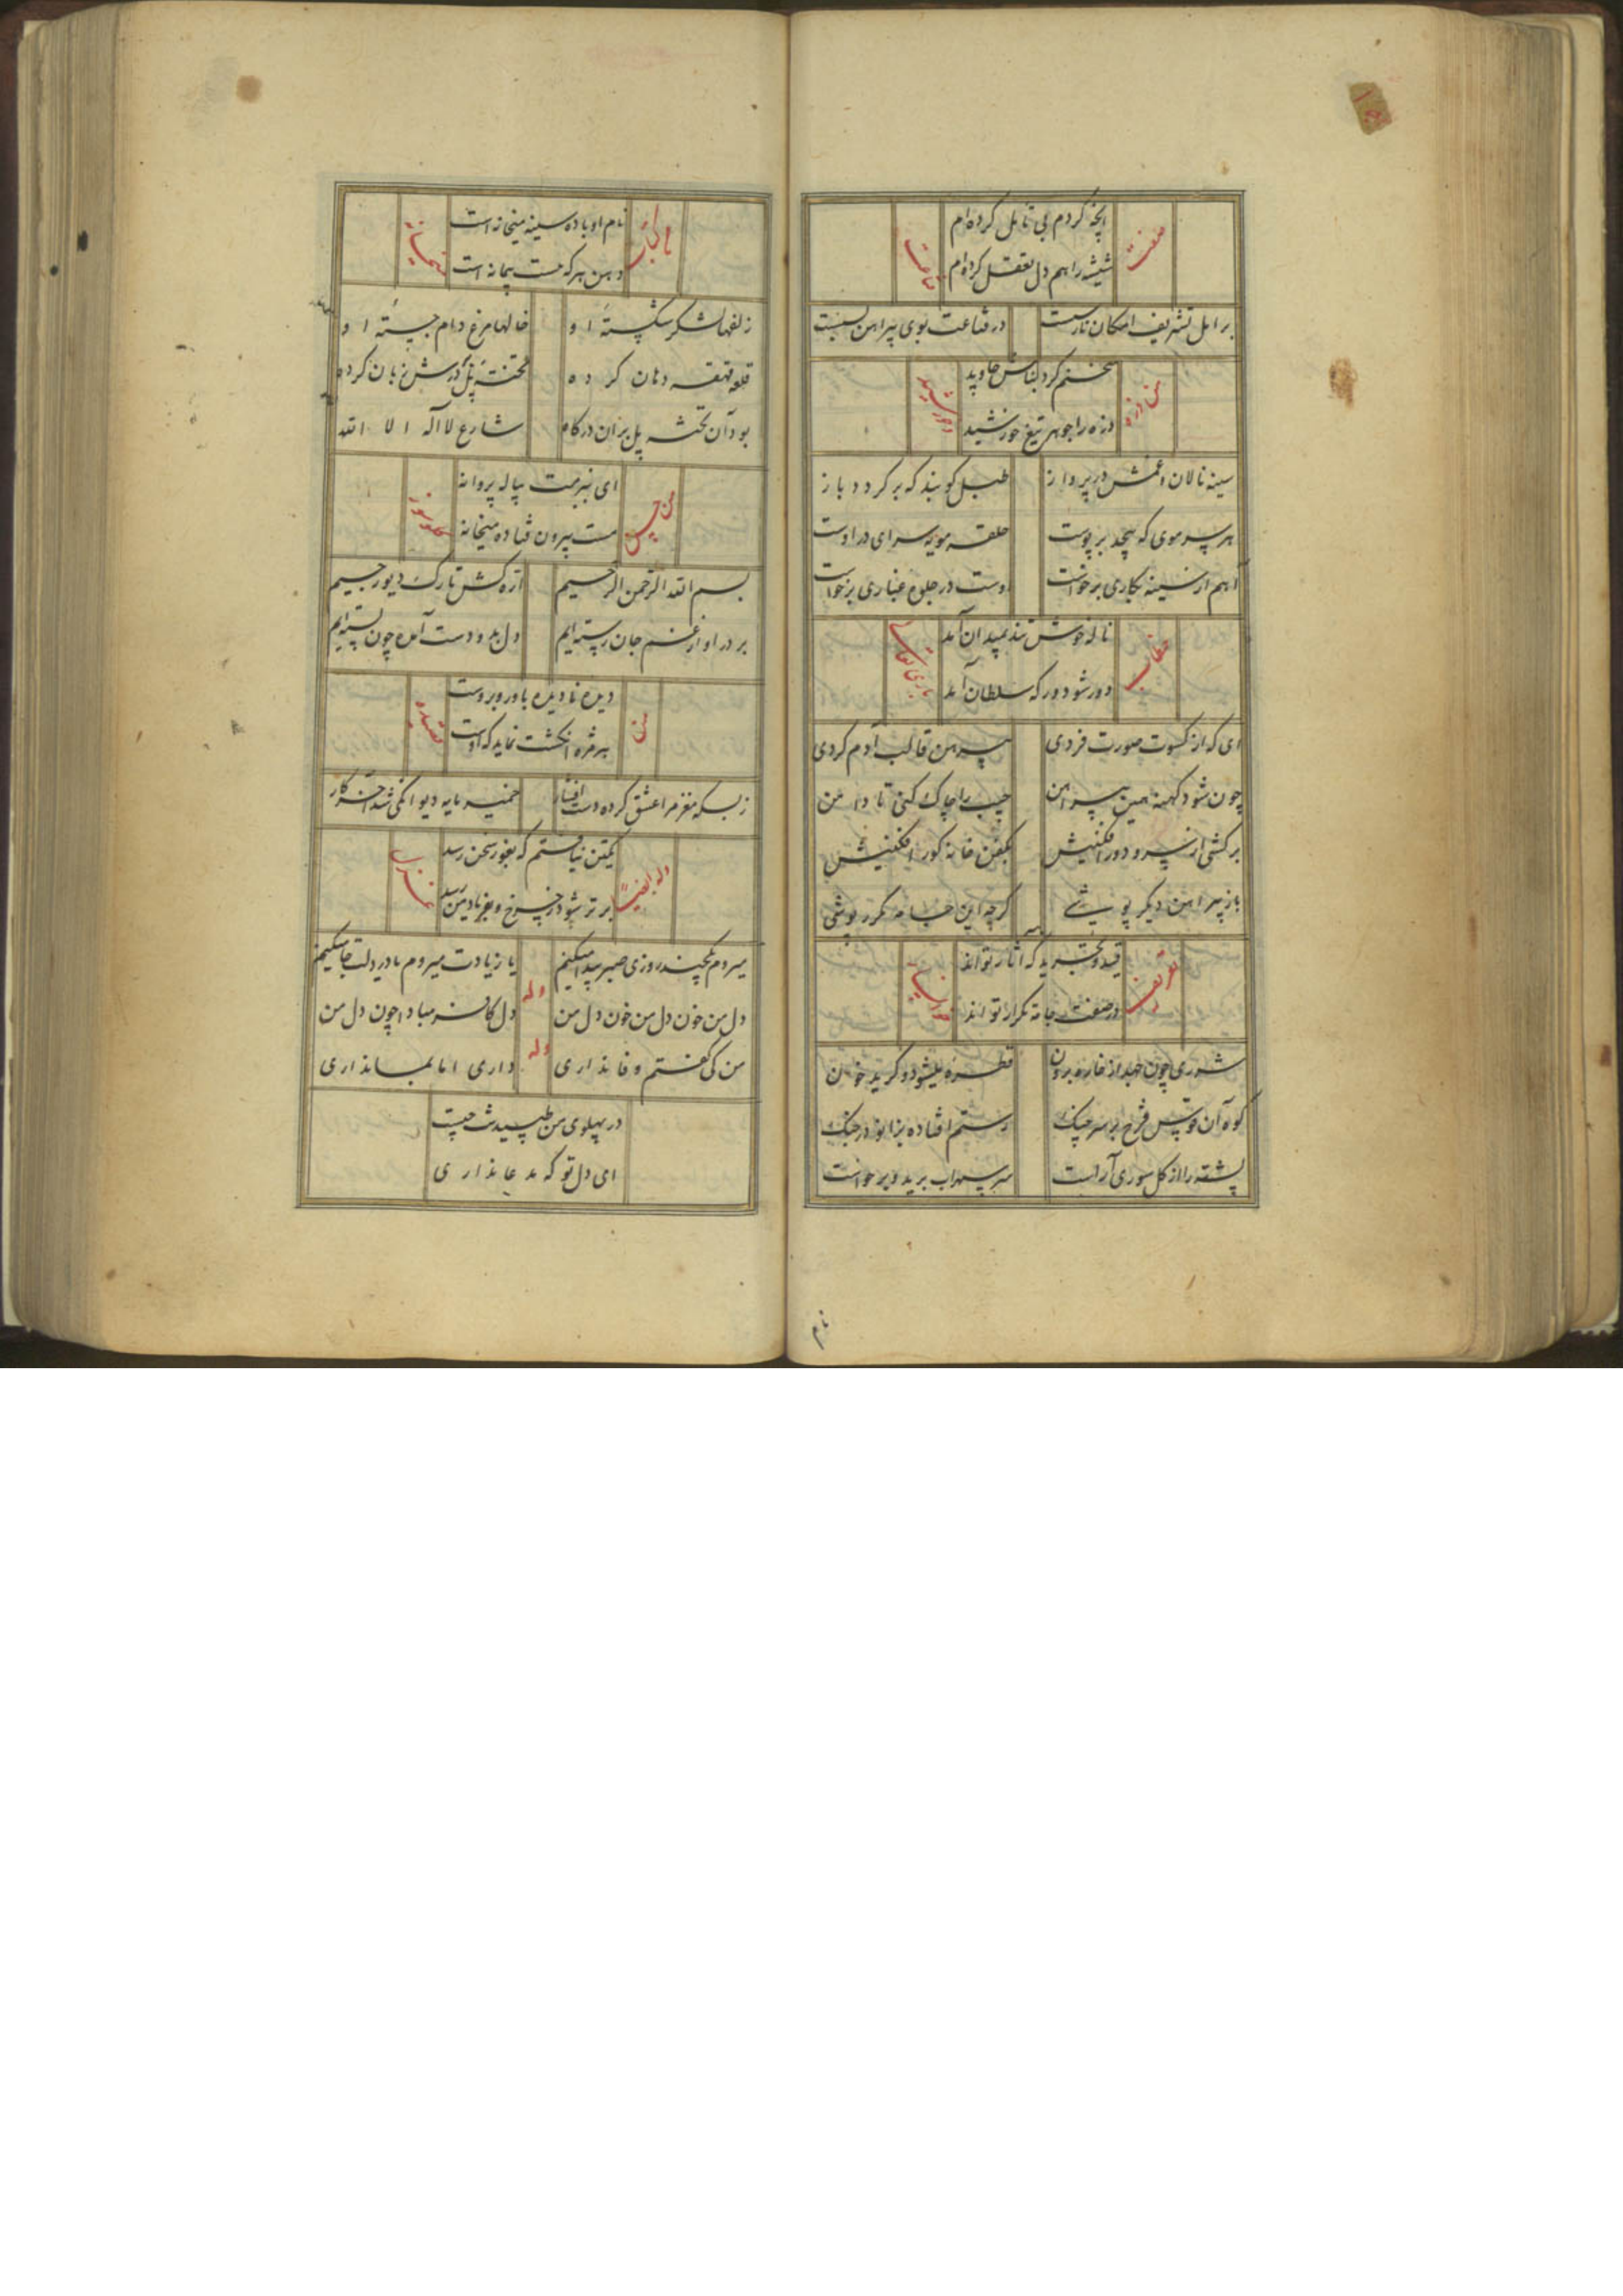 صفت
آنچه کردم بی تامل کرده‌ام
شیشه را هم دل تعقل کرده‌ام
قناعت
بر امل تشریف امکان نارساست
در قناعت بوی پیراهن بسست
من ذره
سخنم کرد بنامش جاوید
ذره را جوهر تیغ خورشید
سینه نالان غمش در پرواز
طبل کوبند که برگردد باز
هر سر موی که پیچد بر پوست
حلقه مویه سرای در اوست
آهم از سینه بکاری برخواست
اوست در جلوه غباری برخواست
خطاب
ناله خوش تند بمیدان آمد
دور شو دور که سلطان آمد
ای که از کسوت صورت فردی
پیرهن قالب آدم کردی
چون شود کهنه همین پیراهن
جیب را چاک کنی تا دامن
برکشی از سر و دور افکنیش
بکفن خانه کور افکنیش
باز پیراهن دیگر پوشی
گرچه این جامه مکرر پوشی
تعریف
قید و تجرید که آثار تواند
در صفت جامه تکرار تواند
شرری چون جهد از خاره برون
قطره میشود و گرید خون
کوه آن قوس قزح بر سر چنگ
رستم افتاده بزانو در جنگ
پشته را از گل سوری آراست
سر سهراب برید و برخواست
نام
نام او باده سینه میخانه است
دهن هر که هست پیمانه است
زلفها لشکر شکسته او
خالها مرغ دام جسته او
قلعه قهقه دهان کرده
تخته پل درش زبان کرده
بود آن تخته پل بران درگاه
شارع لا اله الا الله
ای بزمت پیاله پروانه
مست بیرون فتاده میخانه
بسم الله الرحمن الرحیم
اره کش تارک دیو رجیم
بر در او از غم جان رسته‌ایم
دل بد و دست آمده چون بسته‌ایم
من
دیده نادیده باو روبروست
هر مژه انگشت نماید که اوست
قصیده
ز بسکه مغز مرا عشق کرده دست افشار
خمیر مایه دیوانگی شد آخر کار
وله ایضاً
یکتن نیافتم که بغور سخن رسد
برتر شود ز چرخ و بفریاد من رسد
غزل
میروم یکچند روزی صبر پیدا میکنم
یا ز یادت میروم یا در دلت جا میکنم
وله
دل من خون دل من خون دل من
دل کافر مبادا چون دل من
وله
من کی گفتم وفا نداری
داری اما بما نداری
در پهلوی من طپیدنت چیست
ای دل تو که مدعا نداری